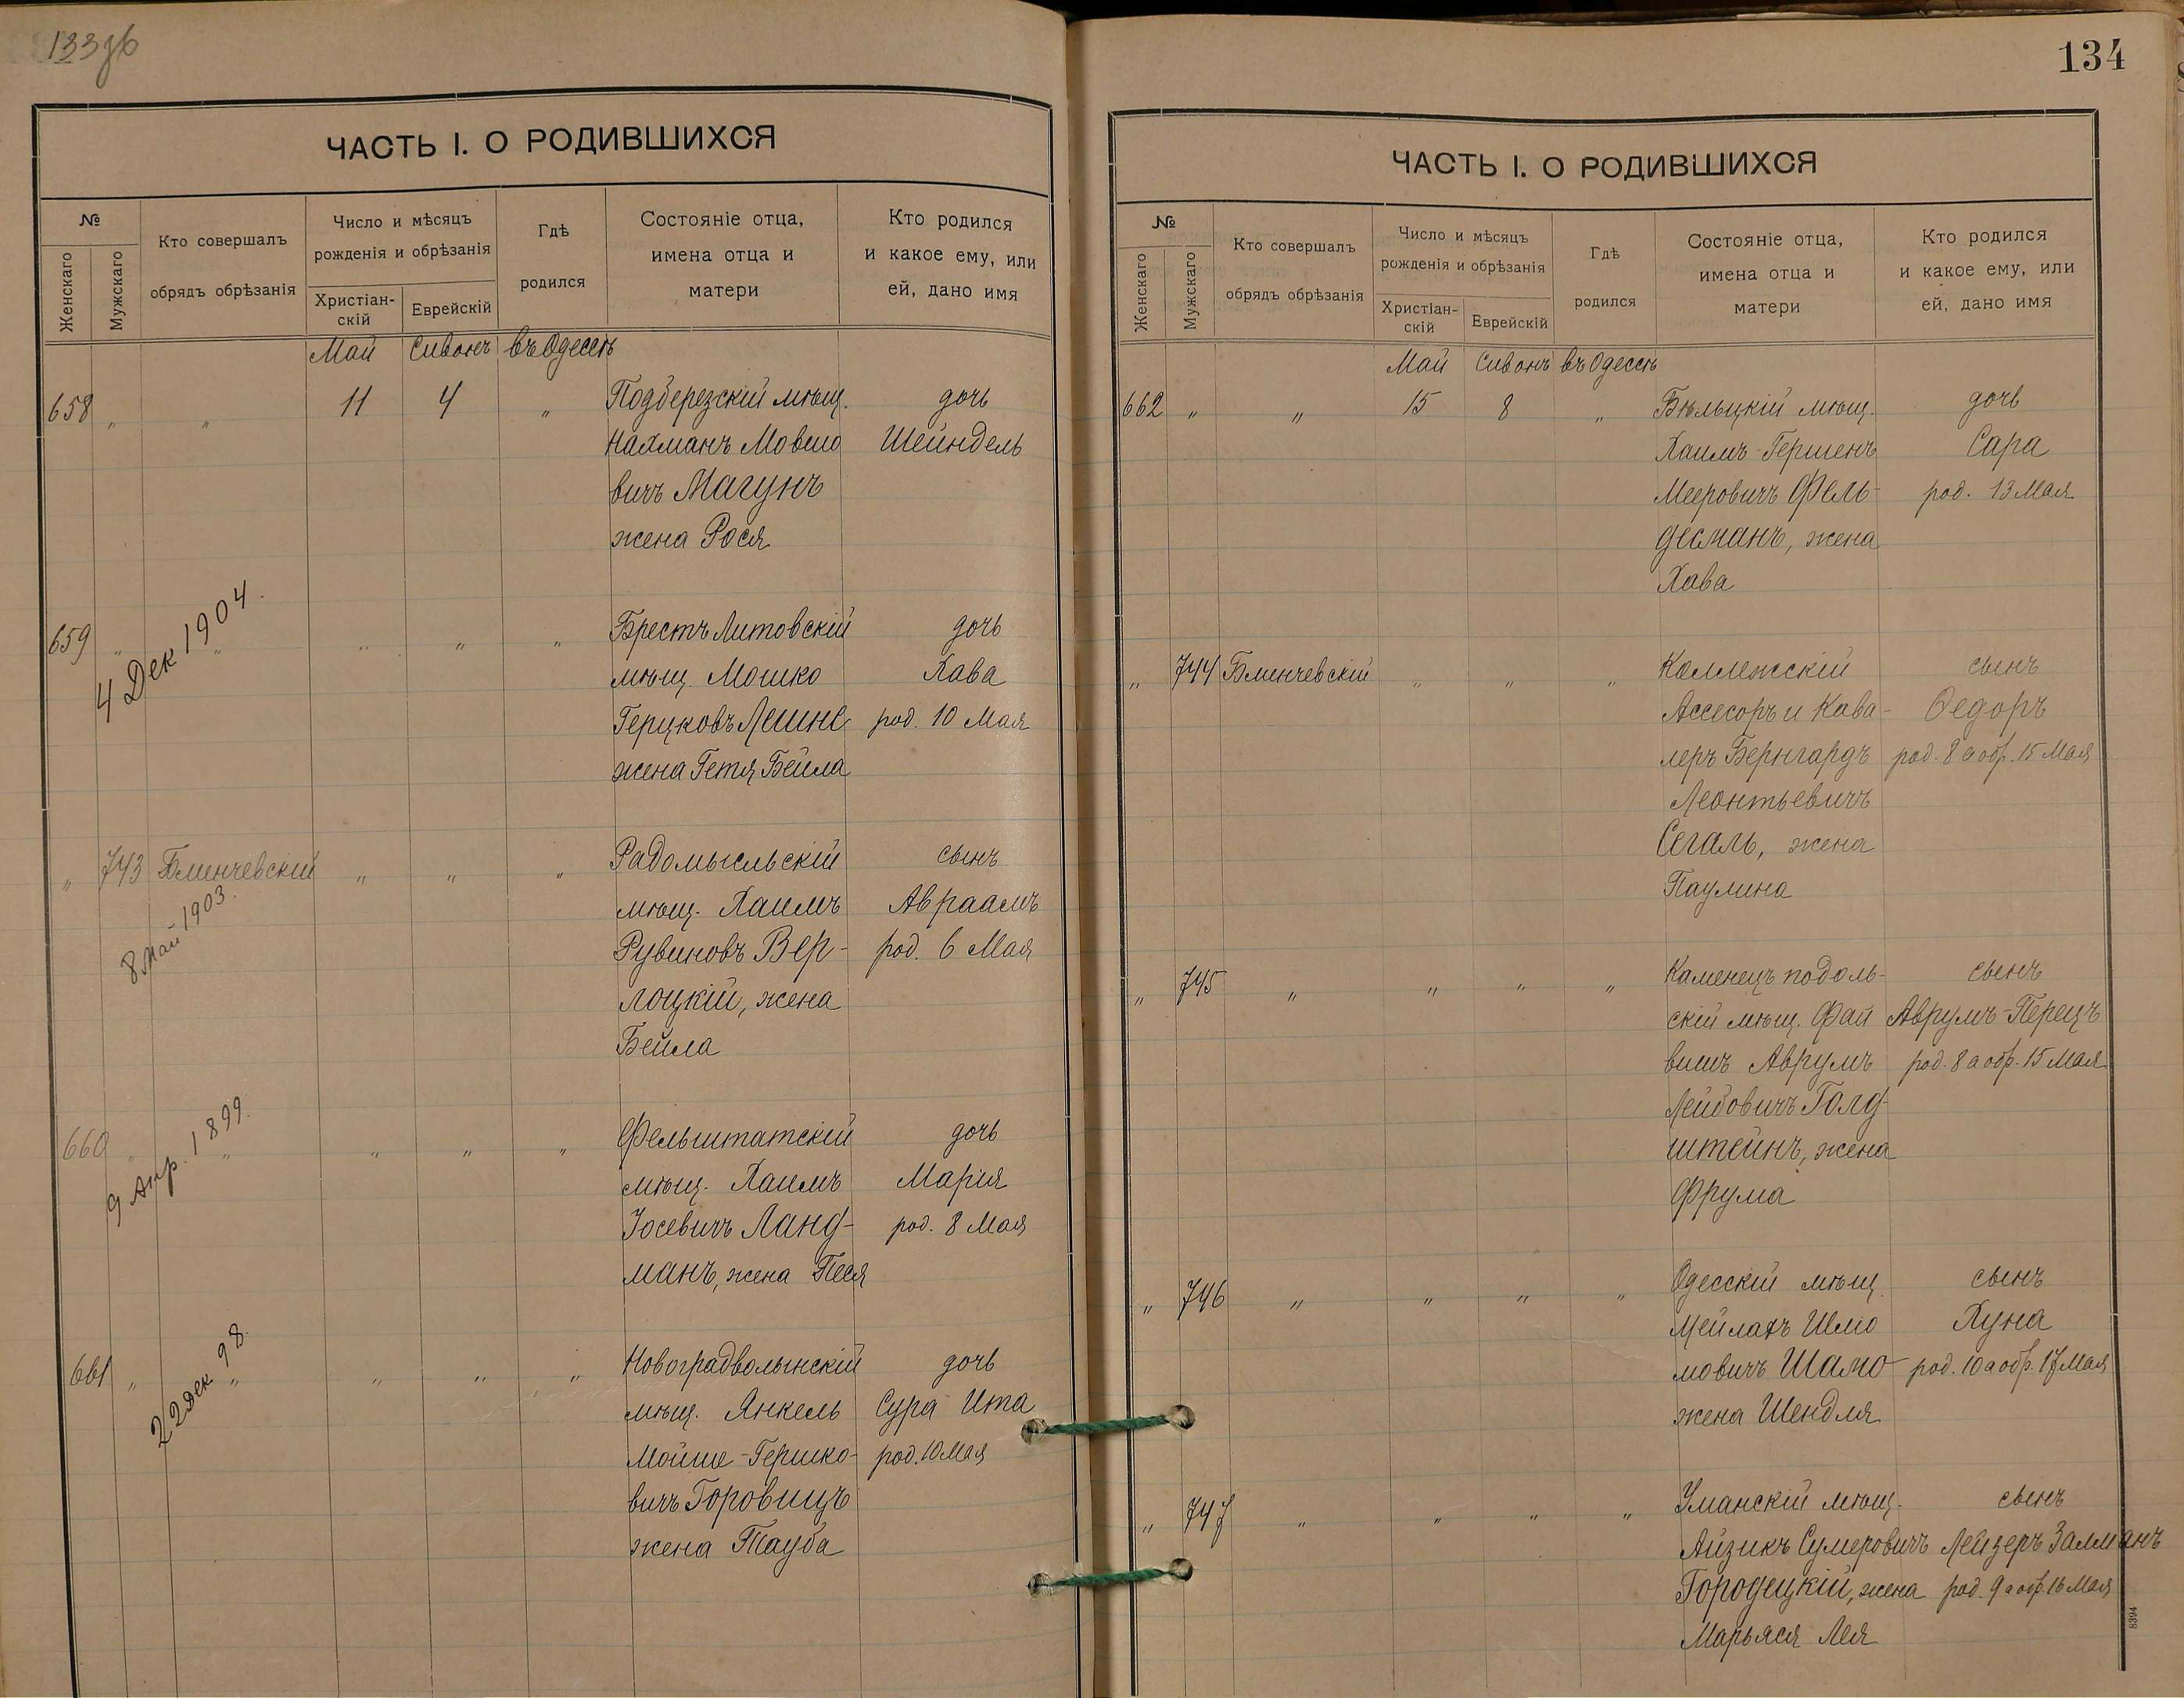 133 зв
ЧАСТЬ I. О РОДИВШИХСЯ
№
Женскаго
Мужскаго
Кто совершалъ
обрядъ обрѣзанія
Число и мѣсяцъ
рожденія и обрѣзанія
Христіан-
скій
Еврейскій
Гдѣ
родился
Состояніе отца,
имена отца и
матери
Кто родился
и какое ему, или
ей, дано имя
Май Сивонъ въ Одессѣ
658 " " 11 4 " Подберезскій мѣщ. дочь
Нахманъ Мовшо Шейндель
вичъ Магунъ
жена Рося
659 " " " " " Брестъ Литовскій дочь
4 Дек 1904.
мѣщ. Мошко Хава
Герцковъ Лешне род. 10 Мая
жена Гетя Бейла
" 743 Блинчевскій " " " Радомысльскій сынъ
8 Май 1903.
мѣщ. Хаимъ Авраамъ
Рувиновъ Вер- род. 6 Мая
лоцкій, жена
Бейла
660 " " " " " Фельштатскій дочь
9 Апр. 1899.
мѣщ. Хаимъ Марія
Іосевичъ Ланд- род. 8 Мая
манъ, жена Песя
661 " " " " " Новоградволынскій дочь
22 дек 98.
мѣщ. Янкель Сура Ита
Мойше-Гершко- род. 10 Мая
вичъ Горовицъ
жена Тауба
134
ЧАСТЬ I. О РОДИВШИХСЯ
№
Женскаго
Мужскаго
Кто совершалъ
обрядъ обрѣзанія
Число и мѣсяцъ
рожденія и обрѣзанія
Христіан-
скій
Еврейскій
Гдѣ
родился
Состояніе отца,
имена отца и
матери
Кто родился
и какое ему, или
ей, дано имя
Май Сивонъ въ Одессѣ
662 " " 15 8 " Бѣльцкій мѣщ. дочь
Хаимъ-Гершенъ Сара
Мееровичъ Фель- род. 13 Мая
десманъ, жена
Хава
" 744 Блинчевскій " " " Коллежскій сынъ
Ассесоръ и Кава- Ѳедоръ
леръ Бернгардъ род. 8 а обр. 15 Мая
Леонтьевичъ
Сегаль, жена
Паулина
" 745 " " " " Каменецъ подоль- сынъ
скій мѣщ. Фай Аврумъ-Перецъ
вишъ Аврумъ род. 8 а обр. 15 Мая
Лейбовичъ Голд-
штейнъ, жена
Фрума
" 746 " " " " Одесскій мѣщ. сынъ
Мейлахъ Шлио Хуна
мовичъ Шамо род. 10 а обр. 17 Мая
жена Шендля
" 747 " " " " Уманскій мѣщ. сынъ
Айзикъ Сумеровичъ Лейзеръ Залманъ
Городецкій, жена род. 9 а обр. 16 Мая
Марьяся Лея
8394